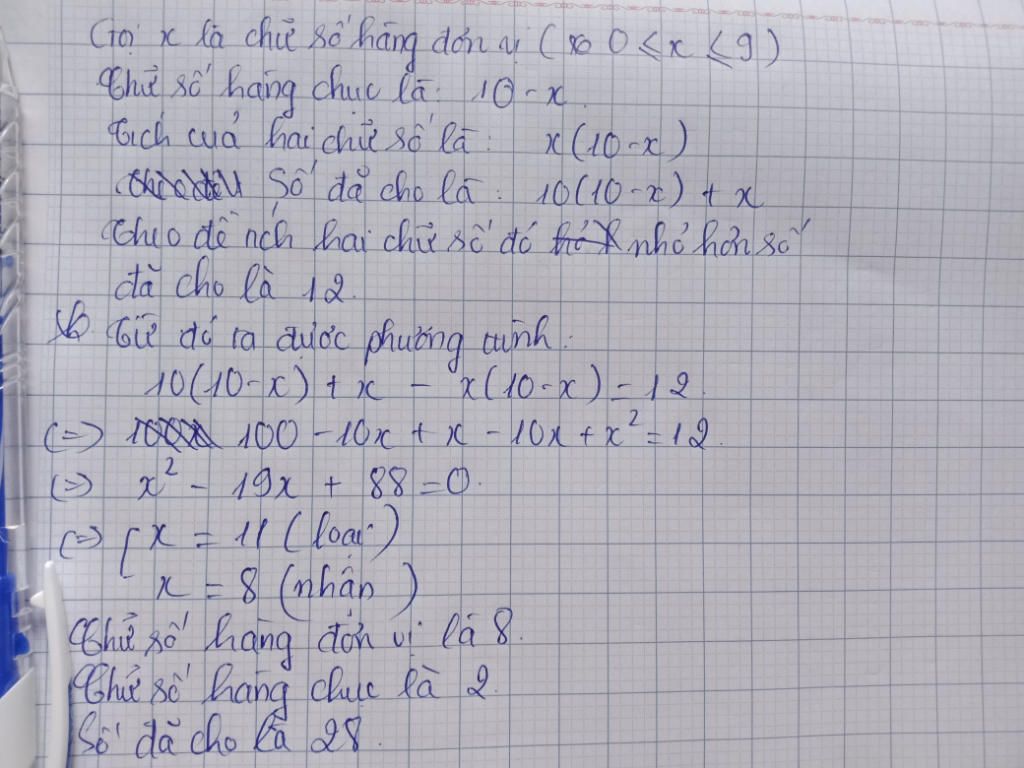 Gọi x là chữ số hàng đơn vị ( 0 < x ≤ 9)
Chữ số hàng chục là: 10 - x
Tích của hai chữ số là: x(10-x)
Số đã cho là: 10(10-x) + x
Theo đề tích hai chữ số đó nhỏ hơn số
đã cho là 12.
Từ đó ra được phương trình:
10(10-x) + x - x(10-x) = 12
(=>) 100 - 10x + x - 10x + x² = 12.
(=>) x² - 19x + 88 = 0.
(=>) [ x = 11 (loại)
x = 8 (nhận)
Chữ số hàng đơn vị là 8.
Chữ số hàng chục là 2
Số đã cho là 28.